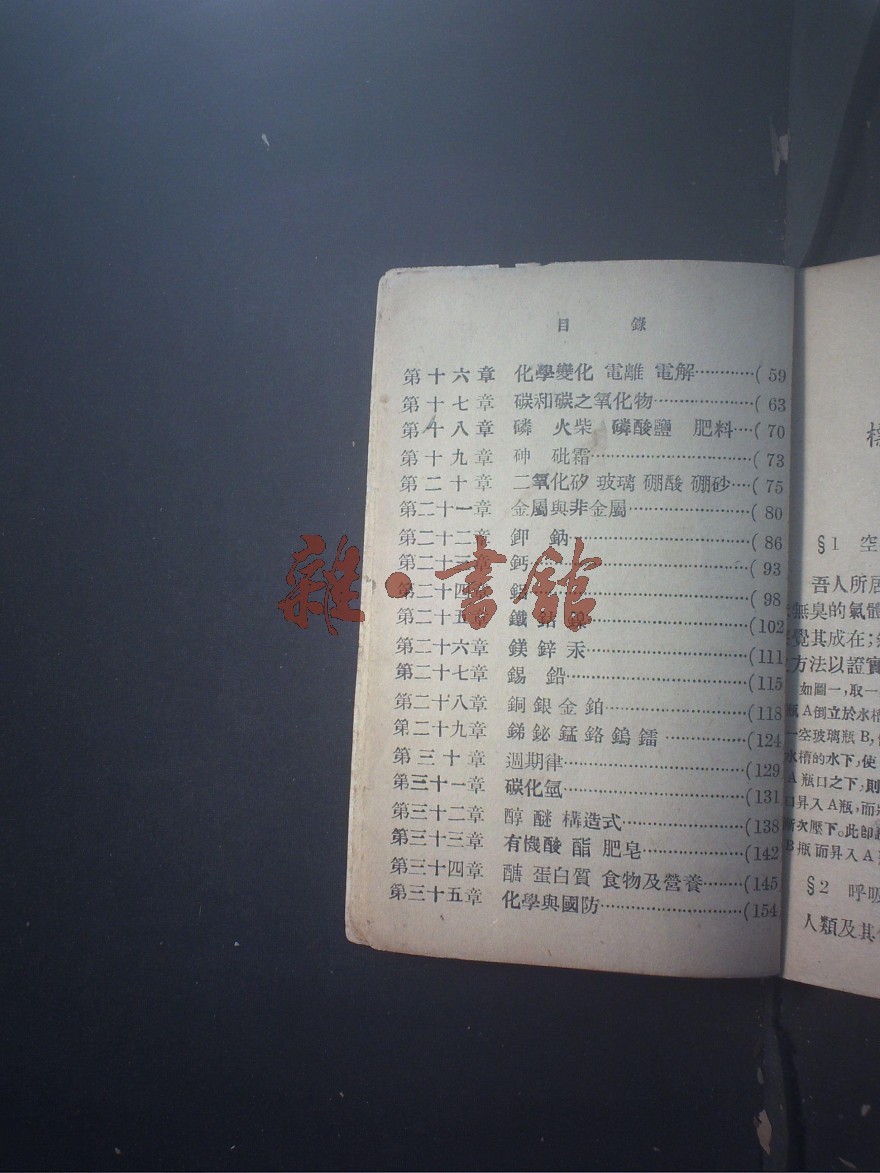 目 錄
第十六章 化學變化 電離 電解…………( 59
第十七章 碳和碳之氧化物…………………( 63
第十八章 磷 火柴 磷酸鹽 肥料…( 70
第十九章 砷 砒霜…………………………( 73
第二十章 二氧化矽 玻璃 硼酸 硼砂…( 75
第二十一章 金屬與非金屬……………………( 80
第二十二章 鉀 鈉……………………………( 86
第二十三章 鈣…………………………………( 93
第二十四章 ………………………………( 98
第二十五章 鐵 鈷 鎳…………………………(102
第二十六章 鎂 鋅 汞…………………………(111
第二十七章 錫 鉛……………………………(115
第二十八章 銅 銀 金 鉑………………………(118
第二十九章 銻 鉍 錳 鉻 鎢 鐳……………(124
第三十章 週期律……………………………(129
第三十一章 碳化氫……………………………(131
第三十二章 醇 醚 構造式…………………(138
第三十三章 有機酸 酯 肥皂…………………(142
第三十四章 醣 蛋白質 食物及營養………(145
第三十五章 化學與國防………………………(154
雜·書館
§1 空
吾人所居
無臭的氣體
覺其成在;
方法以證實
如圖一,取一
瓶A倒立於水槽
一空玻璃瓶B,
水槽的水下,使
A瓶口之下,則
口昇入A瓶,而
所次壓下。此即
B瓶而昇入A
§2 呼吸
人類及其